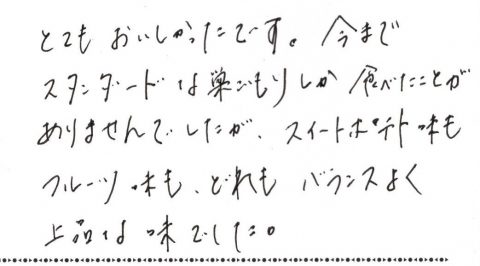 とても おいしかったです。今まで
スタンダードな巣ごもりしか食べたことが
ありませんでしたが、スイートポテト味も
フルーツ味も、どれも バランスよく
上品な味でした。